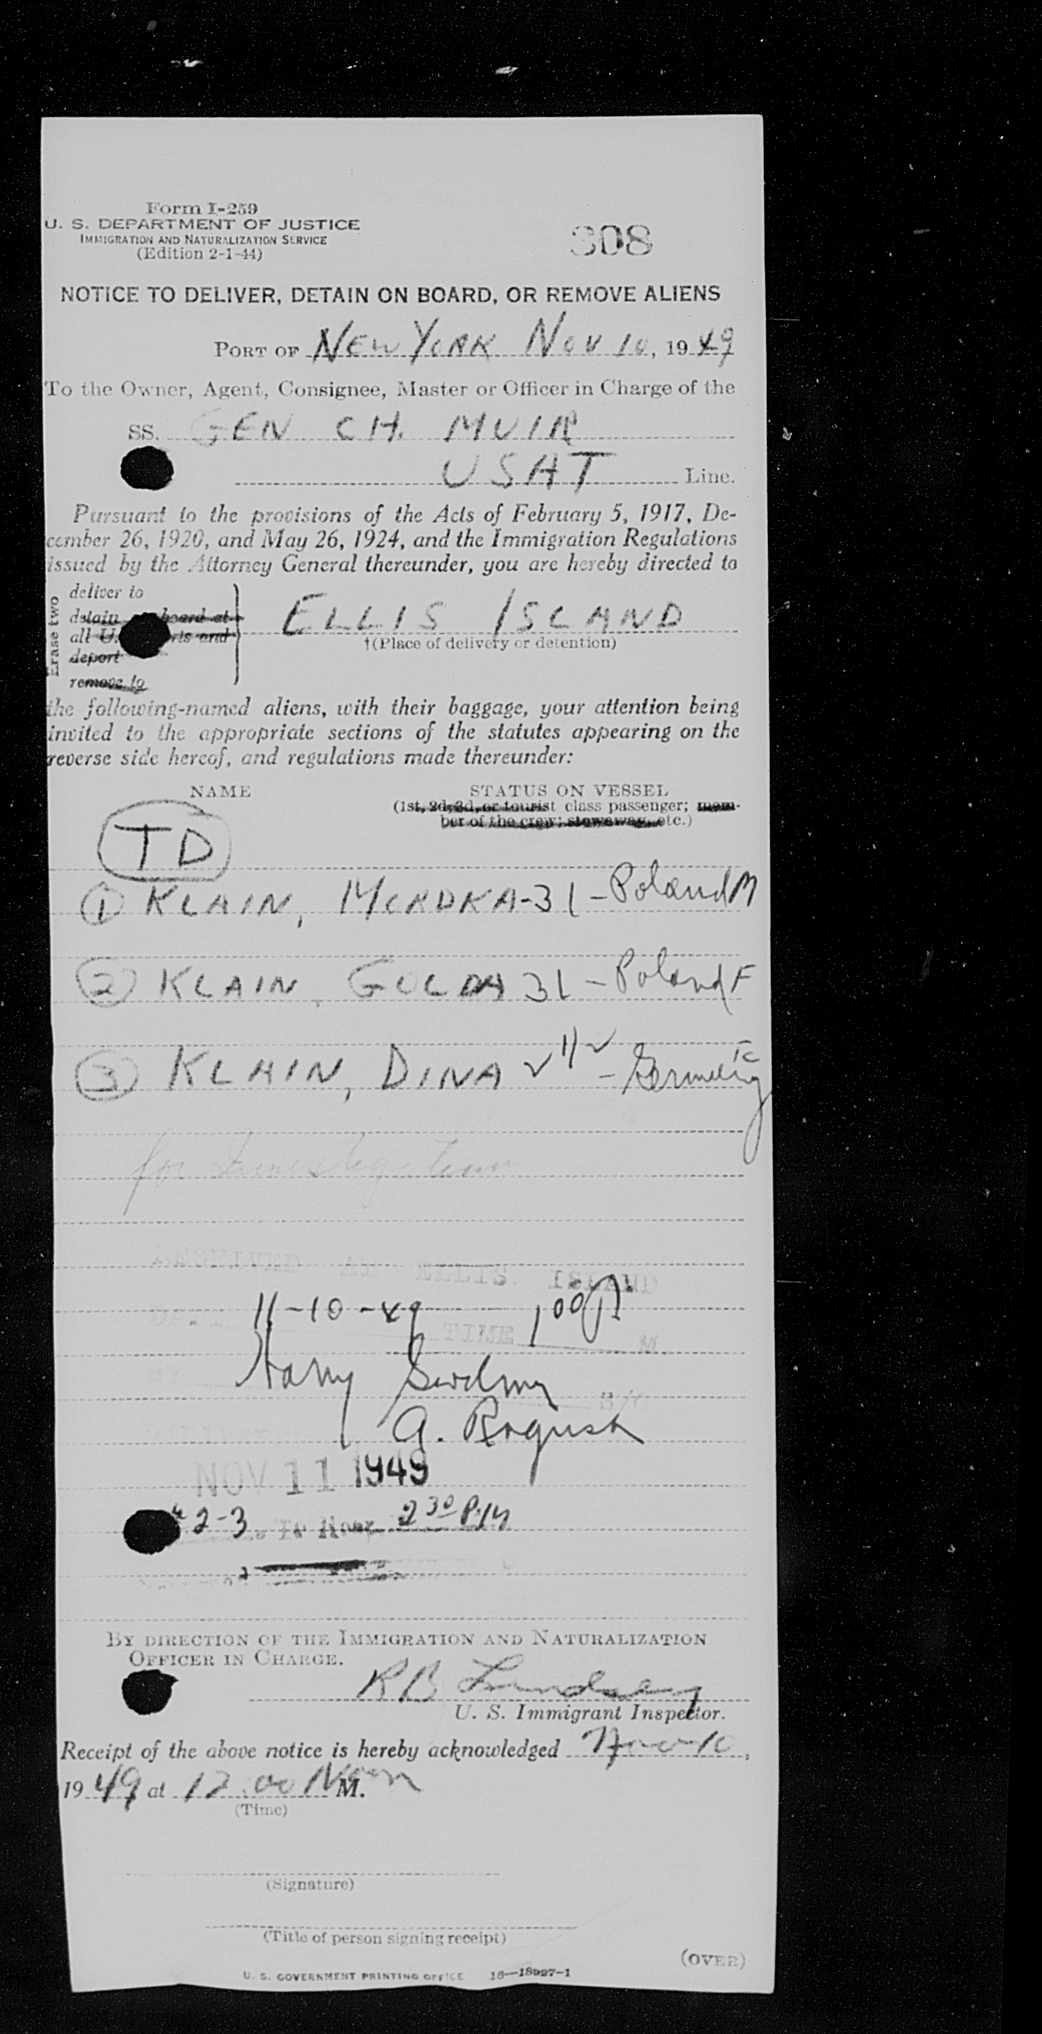 Form I-259
U. S. DEPARTMENT OF JUSTICE
IMMIGRATION AND NATURALIZATION SERVICE
(Edition 2-1-44)
308
NOTICE TO DELIVER, DETAIN ON BOARD, OR REMOVE ALIENS
PORT OF NEW YORK NOV 10, 1949
To the Owner, Agent, Consignee, Master or Officer in Charge of the
SS. GEN CH. MUIR
USAT Line.
Pursuant to the provisions of the Acts of February 5, 1917, De-
cember 26, 1920, and May 26, 1924, and the Immigration Regulations
issued by the Attorney General thereunder, you are hereby directed to
Erase two
deliver to
detain board at
all U. rts and
deport
remove to
ELLIS ISLAND
†(Place of delivery or detention)
the following-named aliens, with their baggage, your attention being
invited to the appropriate sections of the statutes appearing on the
reverse side hereof, and regulations made thereunder:
NAME STATUS ON VESSEL
(1st, 2d, 3d, or tourist class passenger; mem-
ber of the crew; stowaway, etc.)
TD
1 KLAIN, MORDKA-31-Poland M
2 KLAIN, GOLDA 31-Poland F
3 KLAIN, DINA
for investigation
ELLIS ISLAND
11-10-49 1 00 P.
TIME M
Harry
A. Rogush
NOV 11 1949
2-3 2 30 P.M
BY DIRECTION OF THE IMMIGRATION AND NATURALIZATION
OFFICER IN CHARGE.
RB Lindsey
U. S. Immigrant Inspector.
Receipt of the above notice is hereby acknowledged Nov 10,
1949 at 12.00 Noon M.
(Time)
(Signature)
(Title of person signing receipt)
(OVER)
U. S. GOVERNMENT PRINTING OFFICE 16—18997-1